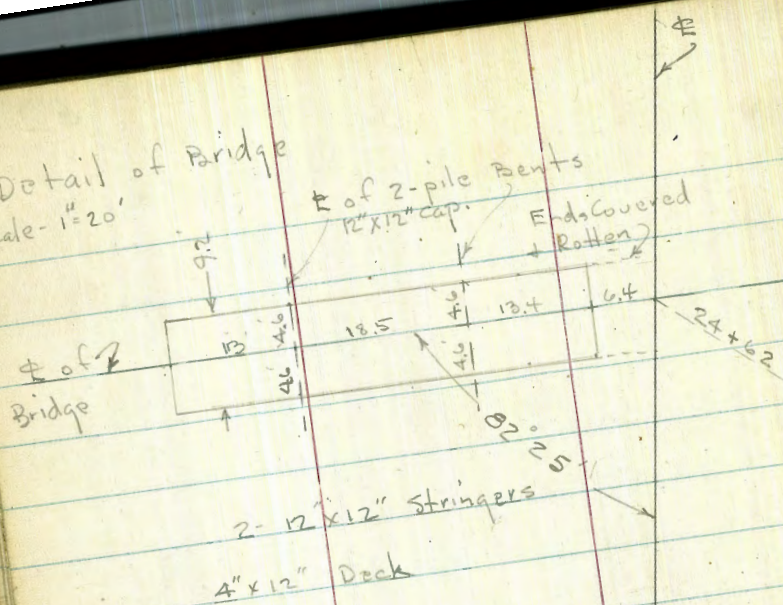 ℄
Detail of Bridge
ale - 1"=20'
℄ of 2-pile Bents
12"x12" cap.
Ends Covered
+ Rotten
9.2
13
4.6
4.6
18.5
4.6
4.6
13.4
6.4
24+62
℄ of
Bridge
82° 25'
2- 12"x12" Stringers
4"x12" Deck